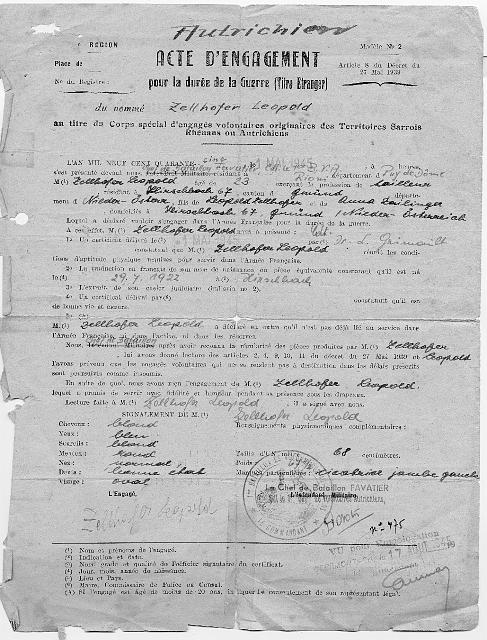 Autrichien
RÉGION
Modèle No 2
Place de
ACTE D'ENGAGEMENT
Article 8 du Décret du
27 Mai 1939
No du Registre:
pour la durée de la Guerre (Titre Etranger)
du nommé Zellhofer Leopold
au titre du Corps spécial d'engagés volontaires originaires des Territoires Sarrois
Rhénans ou Autrichiens
L'AN MIL NEUF CENT QUARANTE cinq
s'est présenté devant nous, FAVATIER Riom département d Puy de Dôme
M(1) Zellhofer Leopold âgé de 23 exerçant la profession de tailleur
résidant à Hirschbach 67, canton d gmünd départe-
ment d Nieder-Österr. fils de Leopold Zellhofer et de Anna
domiciliés à Hirschbach 67 gmünd / Nieder-Österreich
Lequel a déclaré vouloir s'engager dans l'Armée Française pour la durée de la guerre.
A cet effet, M(1) Zellhofer Leopold nous a présenté :
1o Un certificat délivré le(2) par(3) Dr. L. Grimault
constatant que M.(1) Zellhofer Leopold réunit les condi-
tions d'aptitude physique requises pour servir dans l'Armée Française.
2o La traduction en français de son acte de naissance ou pièce équivalente constatant qu'il est né
le(4) 29.7.1922 à(5) Hirschbach
3o L'extrait de son casier judiciaire (bulletin no 2).
4o Un certificat délivré par(6) constatant qu'il est
de bonne vie et mœurs.
M(1) Zellhofer Leopold a déclaré en outre qu'il n'est pas déjà lié au service dans
l'Armée Française, ni dans l'active, ni dans les réserves.
Nous, après avoir reconnu la régularité des pièces produites par M(1) Zellhofer
Leopold, lui avons donné lecture des articles 2, 4, 9, 10, 11 du décret du 27 Mai 1939 et
l'avons prévenu que les engagés volontaires qui ne se rendent pas à destination dans les délais prescrits
sont poursuivis comme insoumis.
En outre de quoi, nous avons reçu l'engagement de M(1) Zellhofer Leopold.
lequel a promis de servir avec fidélité et honneur pendant sa présence sous les drapeaux.
Lecture faite à M(1) Zellhofer Leopold, il a signé avec nous.
SIGNALEMENT DE M.(1) Zellhofer Leopold
Cheveux : blond
Renseignements physionomiques complémentaires :
Yeux : bleu
Sourcils : blond
Menton : rond
Taille d'un mètre 68 centimètres.
Nez : normal
Poids :
Dents :
Marques particulières : cicatrice jambe gauche
Visage : oval
Le Chef de Bataillon FAVATIER
L'Engagé,
L'Intendant Militaire,
Zellhofer Leopold
LE COMMANDANT
no 475
(1) Nom et prénoms de l'engagé.
(2) Indication et date.
(3) Nom, grade et qualité de l'officier signataire du certificat.
(4) Jour, mois, année de naissance.
(5) Lieu et Pays.
(6) Maire, Commissaire de Police ou Consul.
(7) Si l'engagé est âgé de moins de 20 ans, indiquer le consentement de son représentant légal.